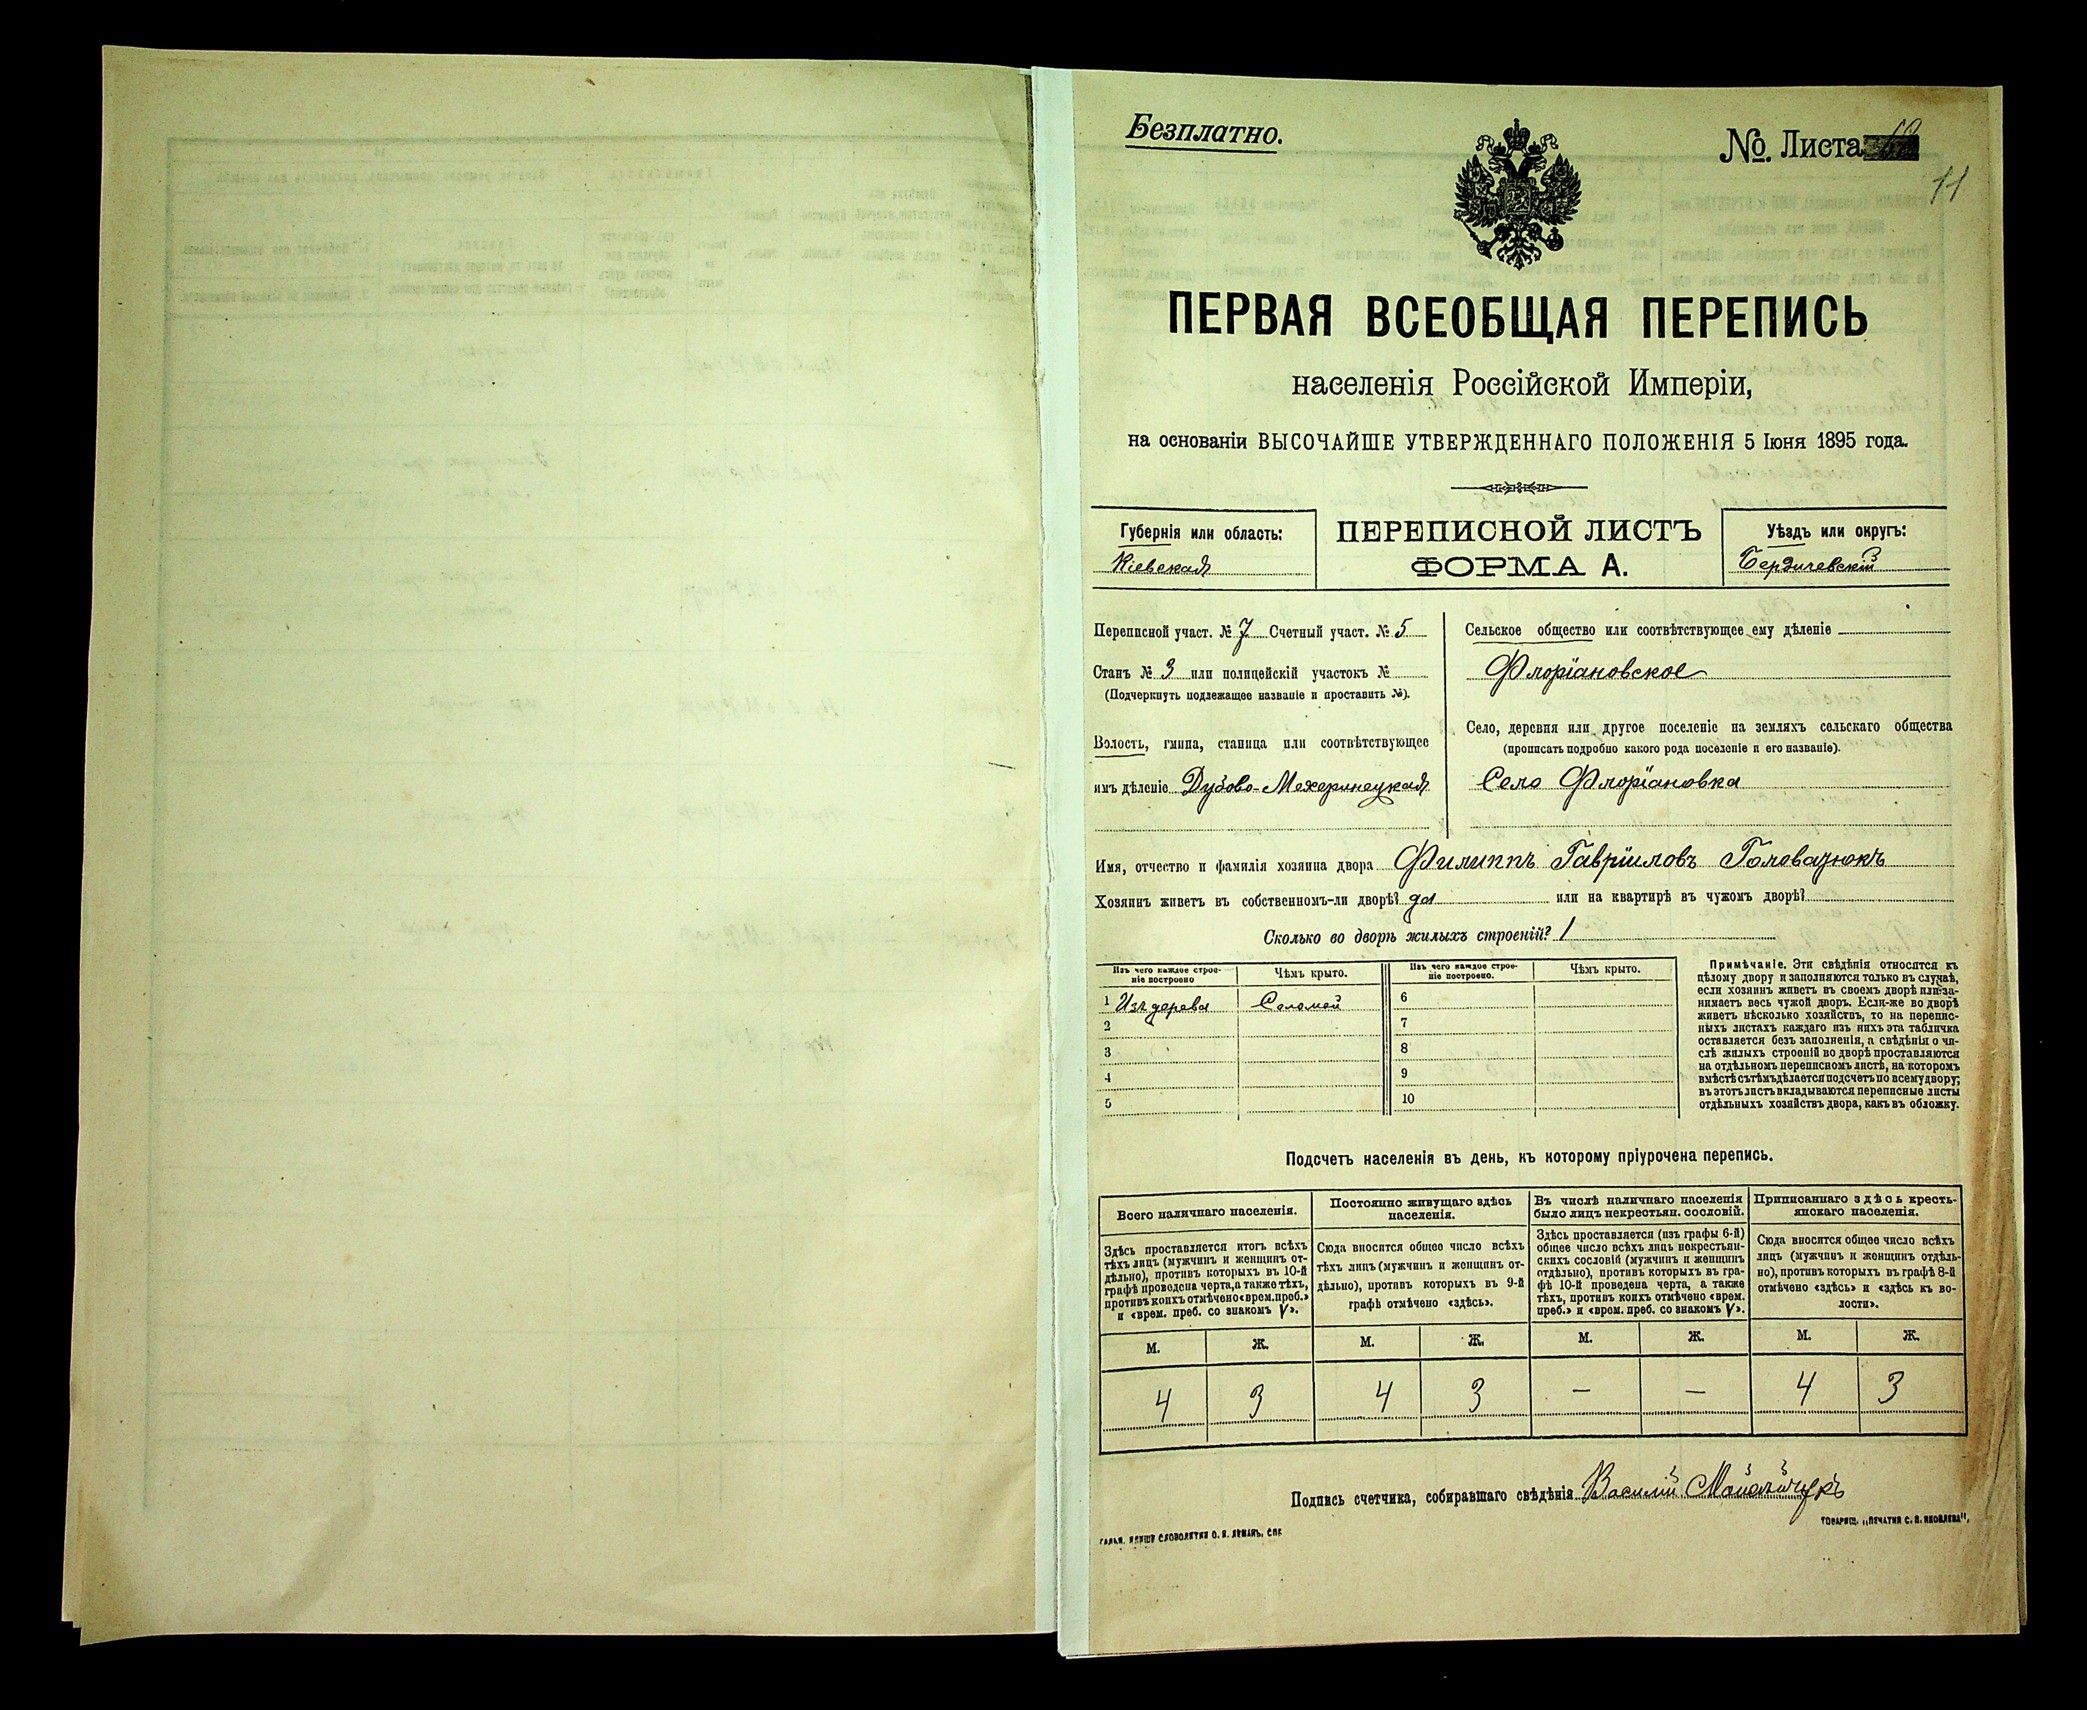 Безплатно.
№. Листа
11
ПЕРВАЯ ВСЕОБЩАЯ ПЕРЕПИСЬ
населенія Россійской Имперіи,
на основаніи ВЫСОЧАЙШЕ УТВЕРЖДЕННАГО ПОЛОЖЕНІЯ 5 Іюня 1895 года.
Губернія или область:
Кіевская
ПЕРЕПИСНОЙ ЛИСТЪ
ФОРМА А.
Уѣздъ или округъ:
Бердичевскій
Переписной участ. № 7 Счетный участ. № 5
Станъ № 3 или полицейскій участокъ №
(Подчеркнуть подлежащее названіе и проставить №).
Волость, гмина, станица или соотвѣтствующее
имъ дѣленіе Дубово-Мехеринецкая
Сельское общество или соотвѣтствующее ему дѣленіе
Флоріановское
Село, деревня или другое поселеніе на земляхъ сельскаго общества
(прописать подробно какого рода поселеніе и его названіе).
Село Флоріановка
Имя, отчество и фамилія хозяина двора Филиппъ Гавріиловъ Головатюкъ
Хозяинъ живетъ въ собственномъ-ли дворѣ? да или на квартирѣ въ чужомъ дворѣ?
Сколько во дворѣ жилыхъ строеній? 1
Изъ чего каждое строе-
ніе построено
Чѣмъ крыто.
Изъ чего каждое строе-
ніе построено.
Чѣмъ крыто.
1 Изъ дерева Соломой 6
2 7
3 8
4 9
5 10
Примѣчаніе. Эти свѣдѣнія относятся къ
цѣлому двору и заполняются только въ случаѣ,
если хозяинъ живетъ въ своемъ дворѣ или за-
нимаетъ весь чужой дворъ. Если-же во дворѣ
живетъ нѣсколько хозяйствъ, то на перепис-
ныхъ листахъ каждаго изъ нихъ эта табличка
оставляется безъ заполненія, а свѣдѣнія о чи-
слѣ жилыхъ строеній во дворѣ проставляются
на отдѣльномъ переписномъ листѣ, на которомъ
вмѣстѣ съ тѣмъ дѣлается подсчетъ по всему двору;
въ этотъ листъ вкладываются переписные листы
отдѣльныхъ хозяйствъ двора, какъ въ обложку.
Подсчетъ населенія въ день, къ которому пріурочена перепись.
Всего наличнаго населенія.
Здѣсь проставляется итогъ всѣхъ
тѣхъ лицъ (мужчинъ и женщинъ от-
дѣльно), противъ которыхъ въ 10-й
графѣ проведена черта, а также тѣхъ,
противъ коихъ отмѣчено «врем. преб.»
и «врем. преб. со знакомъ V».
Постоянно живущаго здѣсь
населенія.
Сюда вносится общее число всѣхъ
тѣхъ лицъ (мужчинъ и женщинъ от-
дѣльно), противъ которыхъ въ 9-й
графѣ отмѣчено «здѣсь».
Въ числѣ наличнаго населенія
было лицъ некрестьян. сословій.
Здѣсь проставляется (изъ графы 6-й)
общее число всѣхъ лицъ некрестьян-
скихъ сословій (мужчинъ и женщинъ
отдѣльно), противъ которыхъ въ гра-
фѣ 10-й проведена черта, а также
тѣхъ, противъ коихъ отмѣчено «врем.
преб.» и «врем. преб. со знакомъ V».
Приписаннаго здѣсь кресть-
янскаго населенія.
Сюда вносится общее число всѣхъ
лицъ (мужчинъ и женщинъ отдѣль-
но), противъ которыхъ въ графѣ 8-й
отмѣчено «здѣсь» и «здѣсь къ во-
лости».
М. Ж. М. Ж. М. Ж. М. Ж.
4 3 4 3 — — 4 3
Подпись счетчика, собиравшаго свѣдѣнія Василій
СЛОВОЛИТНИ О. И. ЛЕМАНЪ, СПБ.
ТОВАРИЩ. „ПЕЧАТНЯ С. П. ЯКОВЛЕВА“.